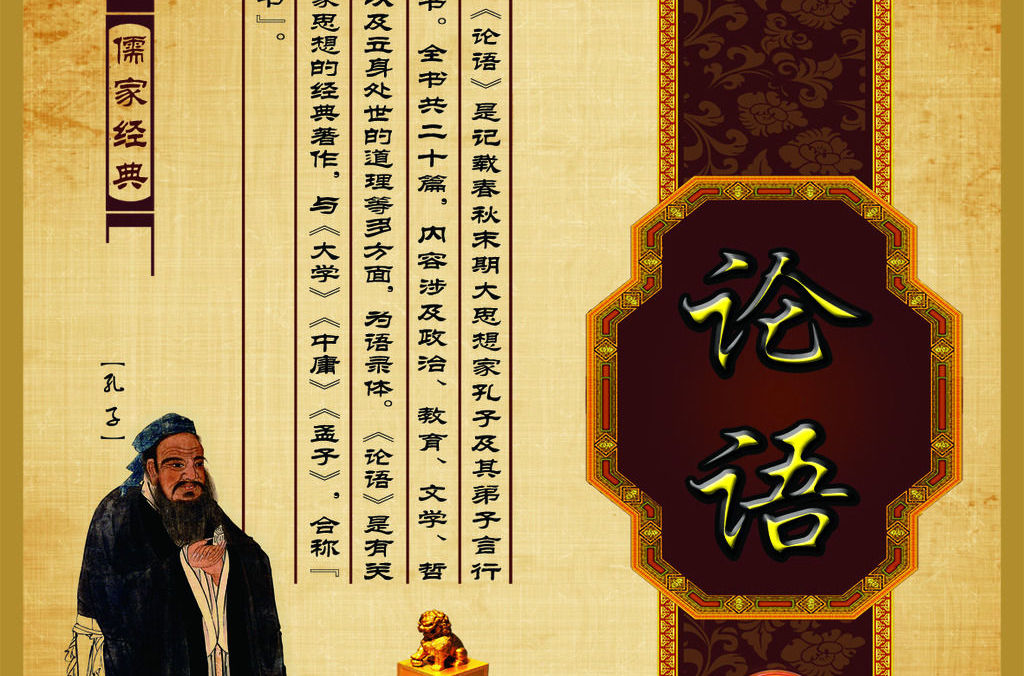 论语
《论语》是记载春秋末期大思想家孔子及其弟子言行
书。全书共二十篇，内容涉及政治、教育、文学、哲
以及立身处世的道理等多方面，为语录体。《论语》是有关
家思想的经典著作，与《大学》《中庸》《孟子》，合称『
书』。
儒家经典
【孔子】